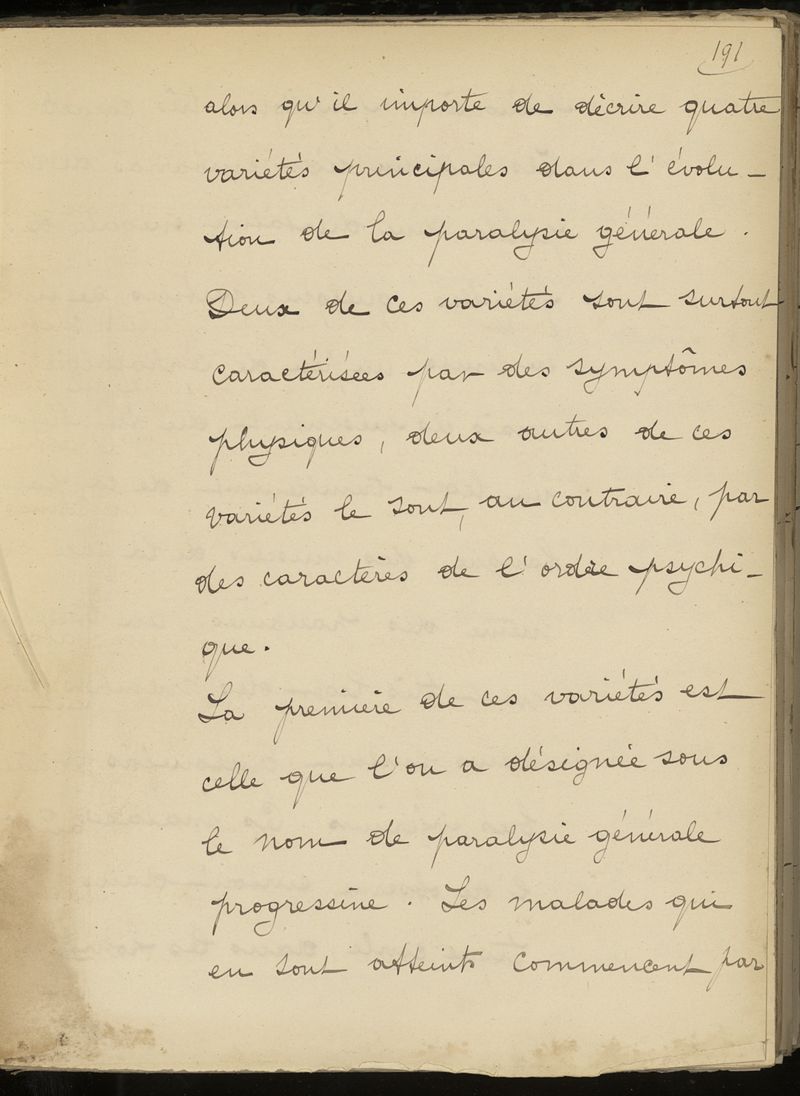 191
alors qu'il importe de décrire quatre
variétés principales dans l'évolu-
tion de la paralysie générale.
Deux de ces variétés sont surtout
caractérisées par des symptômes
physiques, deux autres de ces
variétés le sont, au contraire, par
des caractères de l'ordre psychi-
que.
La première de ces variétés est
celle que l'on a désignée sous
le nom de paralysie générale
progressive. Les malades qui
en sont atteints commencent par